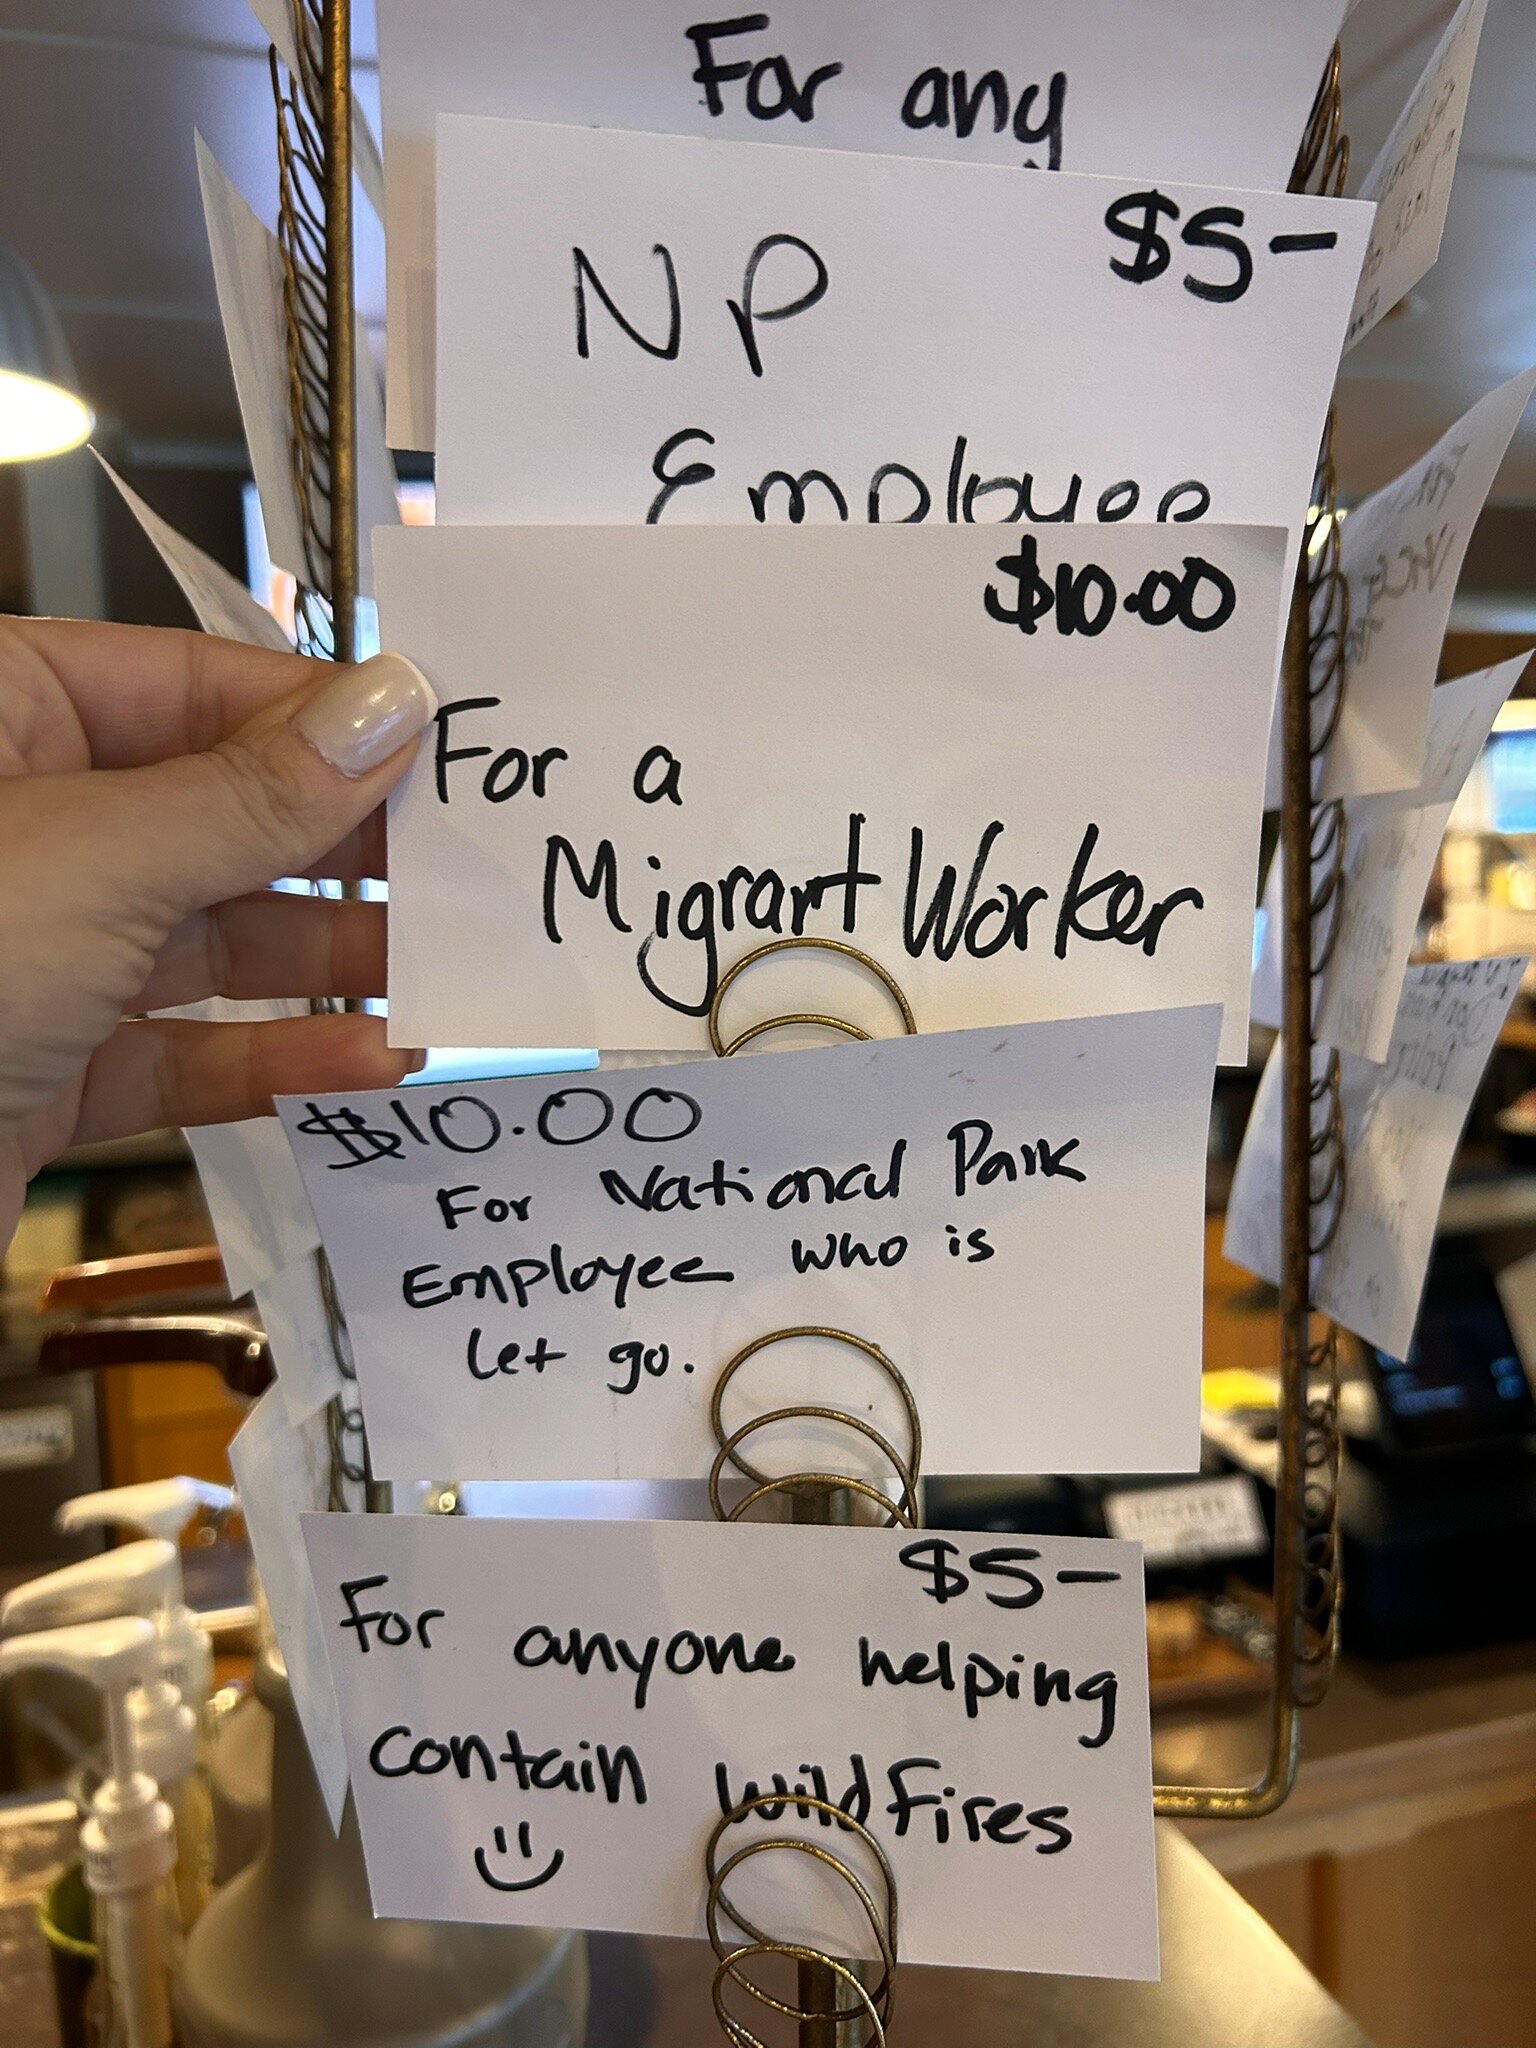 For any
$5-
NP
Employee
$10.00
For a
Migrant Worker
$10.00
For National Park
Employee who is
let go.
$5-
For anyone helping
contain wildfires